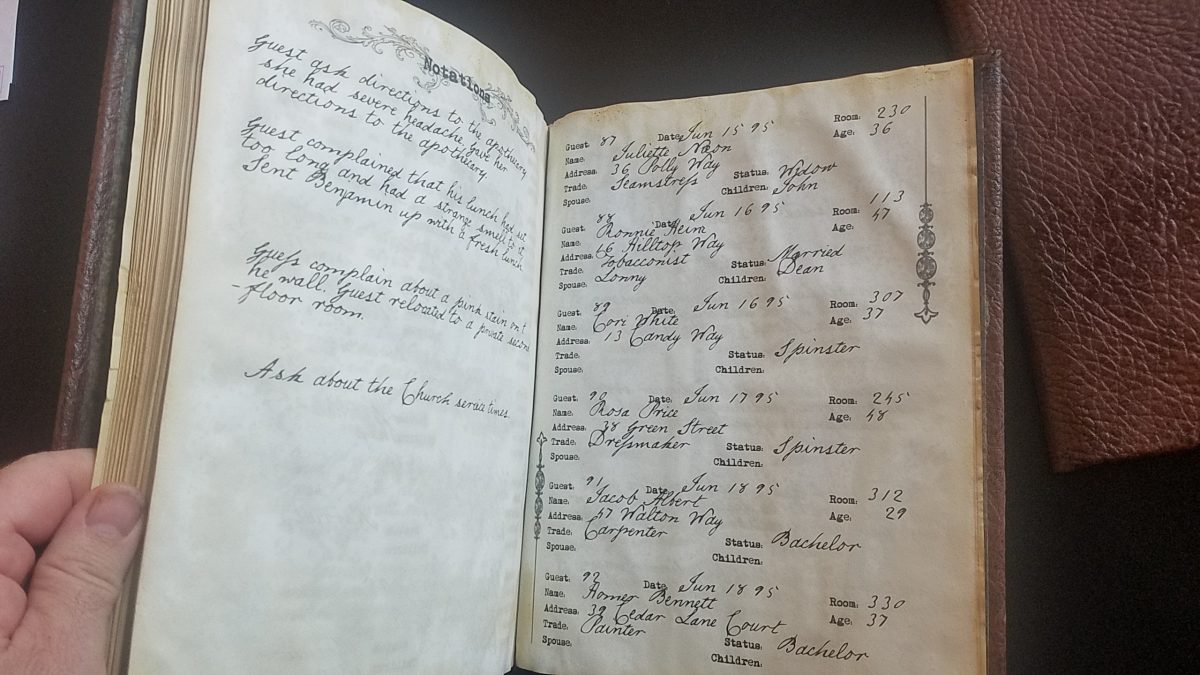 Notations
Guest ask directions to the apothecary,
she had severe headache, gave her
directions to the apothecary.
Guest complained that his lunch had set
too long and had a strange smell to it,
Sent Benjamin up with a fresh lunch
Gueſs complain about a pink stain on t
he wall. Guest relocated to a private second
-floor room.
Ask about the Church service times.
Guest: 87 Date: Jun 15 95 Room: 230
Name: Juliette Nixon Age: 36
Address: 36 Jolly Way
Trade: Seamstreſs Status: Widow
Spouse: Children: John
Guest: 88 Date: Jun 16 95 Room: 113
Name: Ronnie Heim Age: 47
Address: 16 Hilltop Way
Trade: Tobacconist Status: Married
Spouse: Lonny Children: Dean
Guest: 89 Date: Jun 16 95 Room: 307
Name: Cori White Age: 37
Address: 13 Candy Way
Trade: Status: Spinster
Spouse: Children:
Guest: 90 Date: Jun 17 95 Room: 245
Name: Rosa Price Age: 48
Address: 38 Green Street
Trade: Dreſsmaker Status: Spinster
Spouse: Children:
Guest: 91 Date: Jun 18 95 Room: 312
Name: Jacob Albert Age: 29
Address: 47 Walton Way
Trade: Carpenter Status: Bachelor
Spouse: Children:
Guest: 92 Date: Jun 18 95 Room: 330
Name: Homer Bennett Age: 37
Address: 39 Cedar Lane Court
Trade: Painter Status: Bachelor
Spouse: Children: